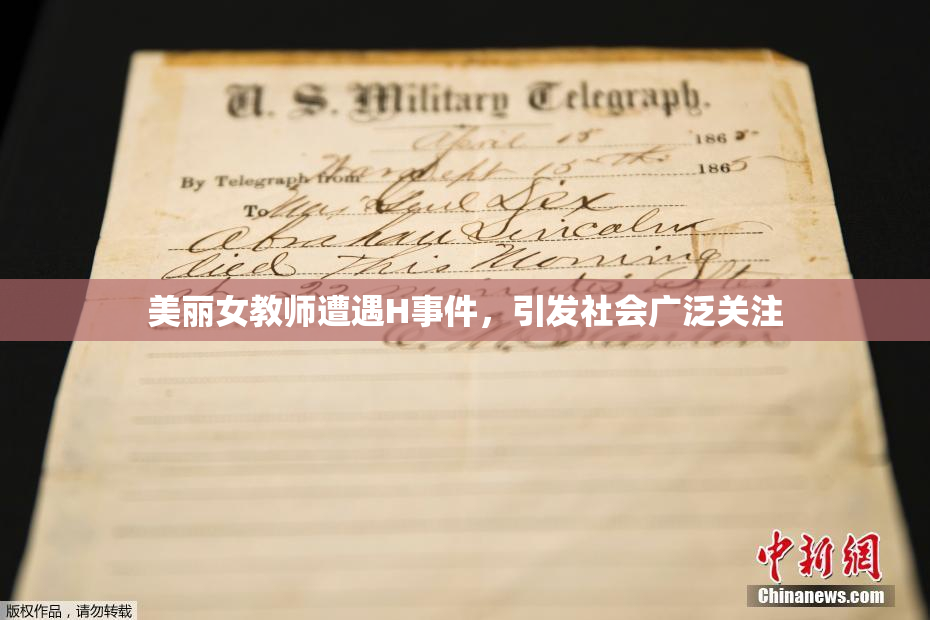 U. S. Military Telegraph.
April 15 1865
By Telegraph from War Dept 15th 1865
To Maj Genl Dix
Abraham Lincoln
died This Morning
at 22 minutes after
美丽女教师遭遇H事件，引发社会广泛关注
E. M. Stanton
中新网
Chinanews.com
版权作品，请勿转载